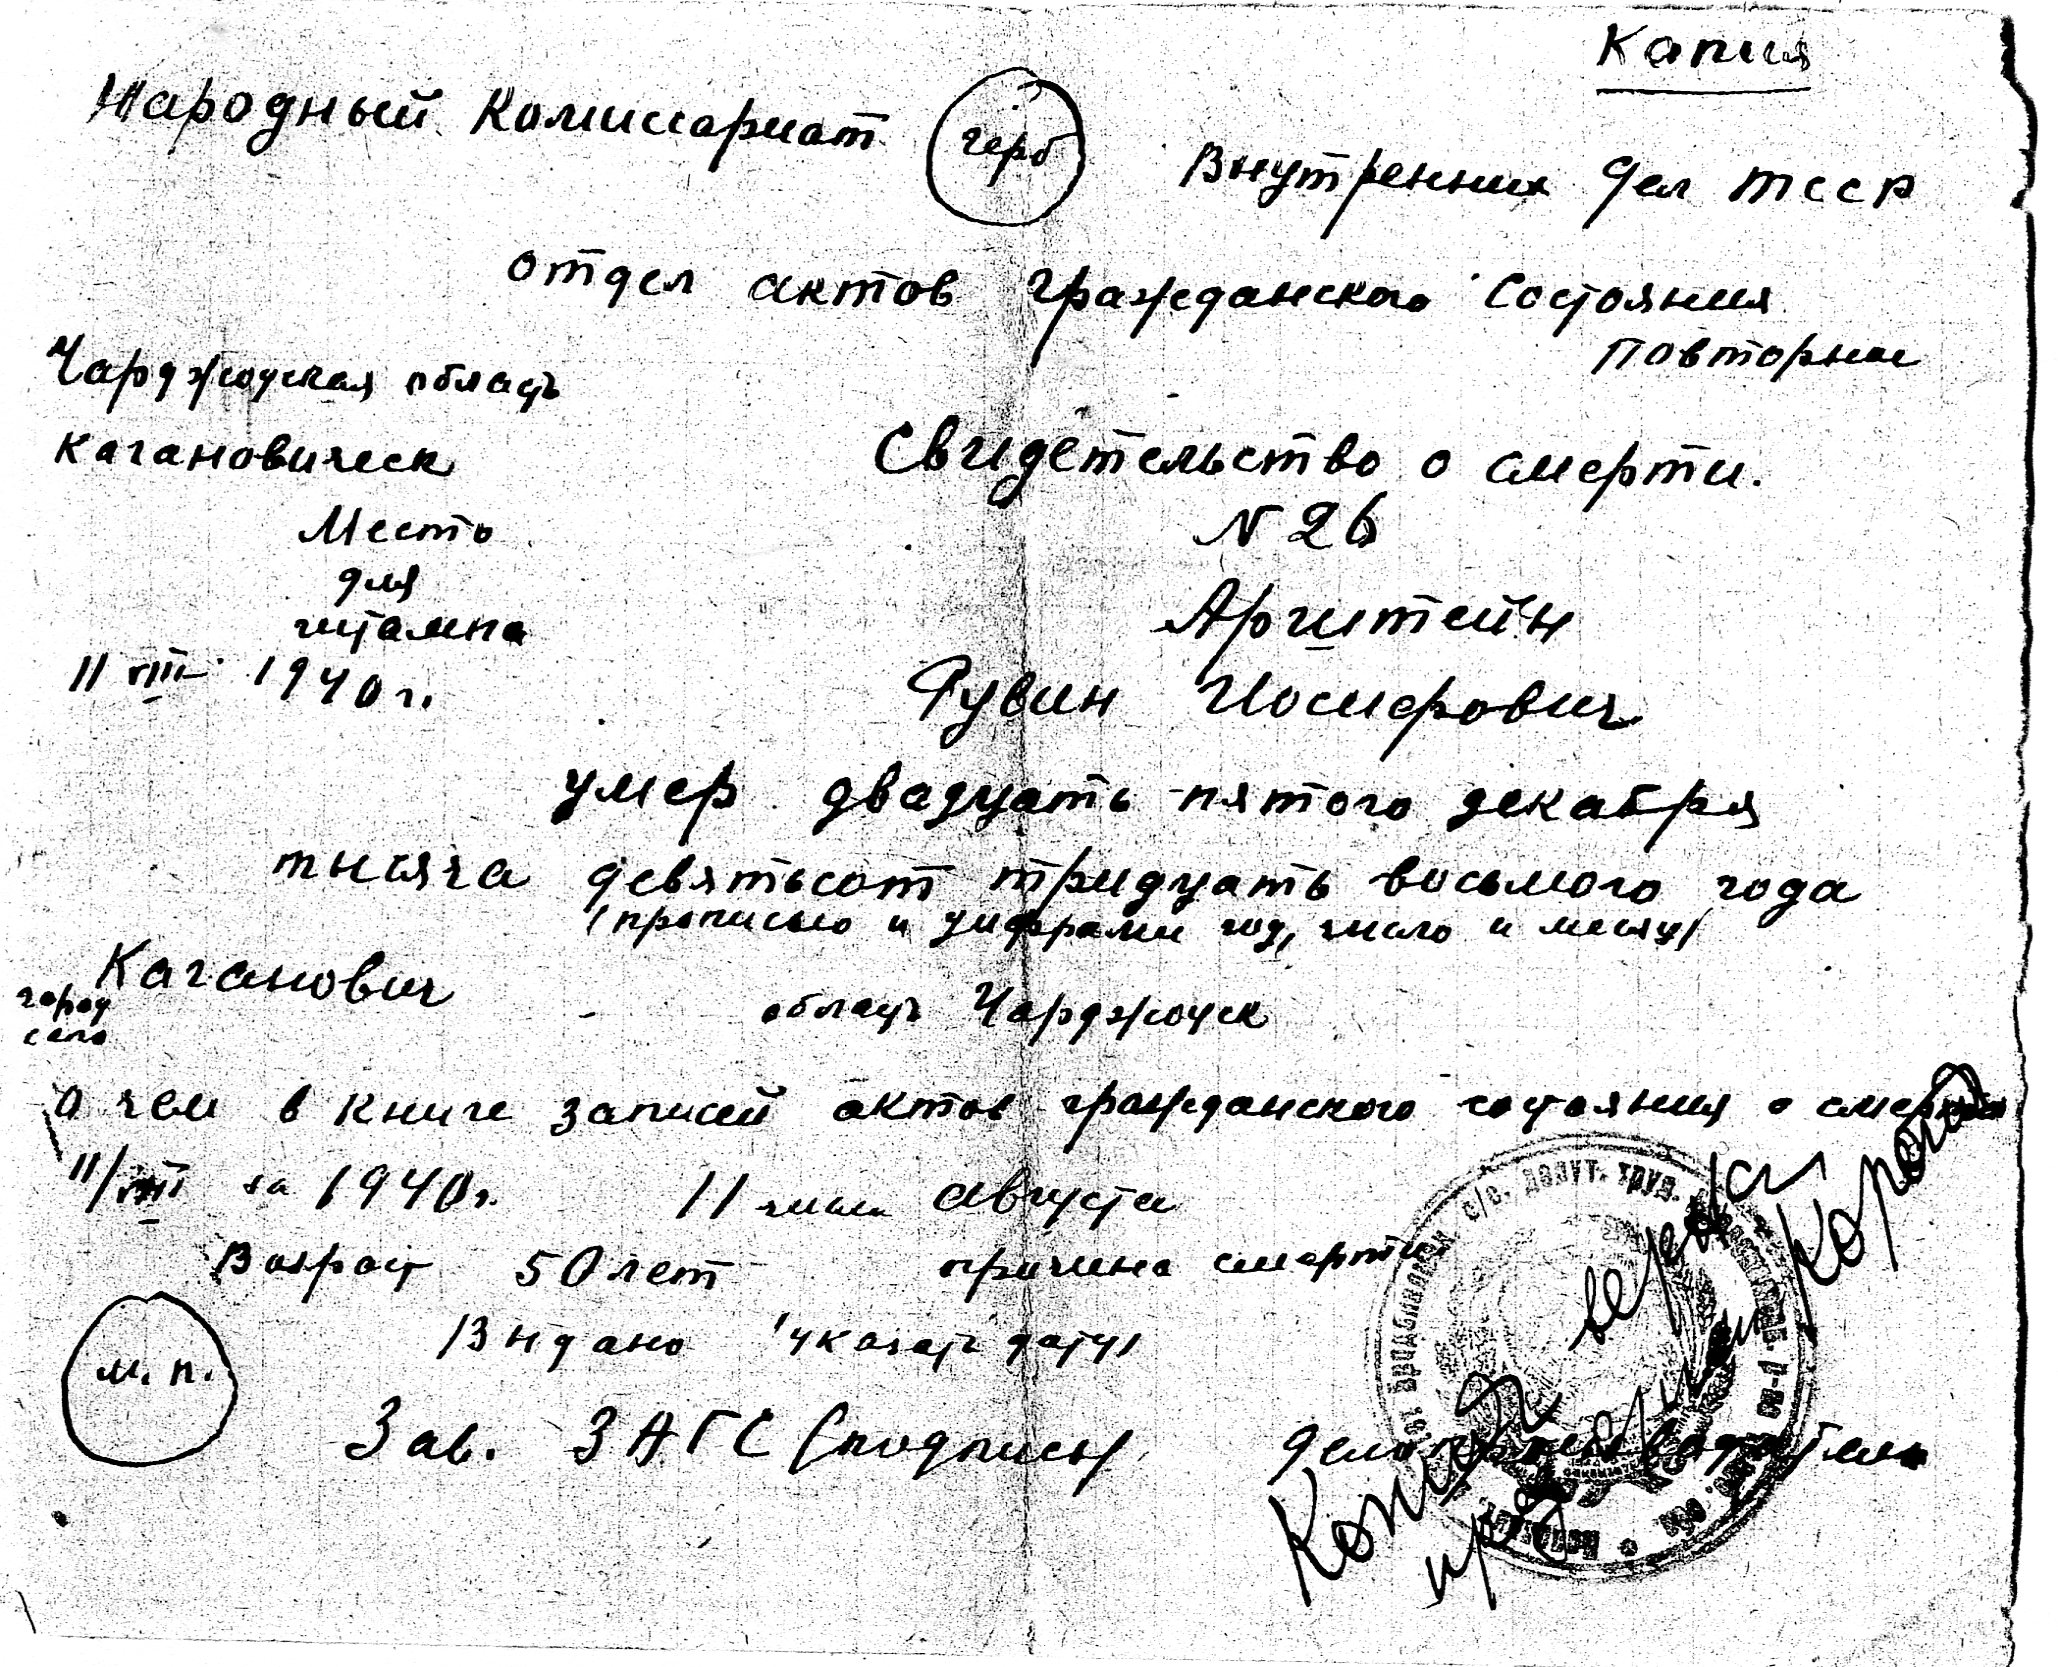 Капия
Народный Комиссариат герб Внутренних дел ТССР
отдел актов гражданского состояния
Повторное
Чарджоуская область
Кагановическ Свидетельство о смерти.
Место N 26
для
штампа Арштейн
11 VIII 1940 г. Рувин Иосифович
умер двадцать пятого декабря
тысяча девятьсот тридцать восьмого года
(прописью и цифрами год, число и месяц)
город Каганович область Чарджоуск
село
о чем в книге записей актов гражданского состояния о смерти
11/VIII за 1940 г. 11 числа августа
Возраст 50 лет причина смерти
Выдано (указать дату)
м. п.
Зав. ЗАГС (подпись) делопроизводитель
Копия верна
с/с. депут. труд.